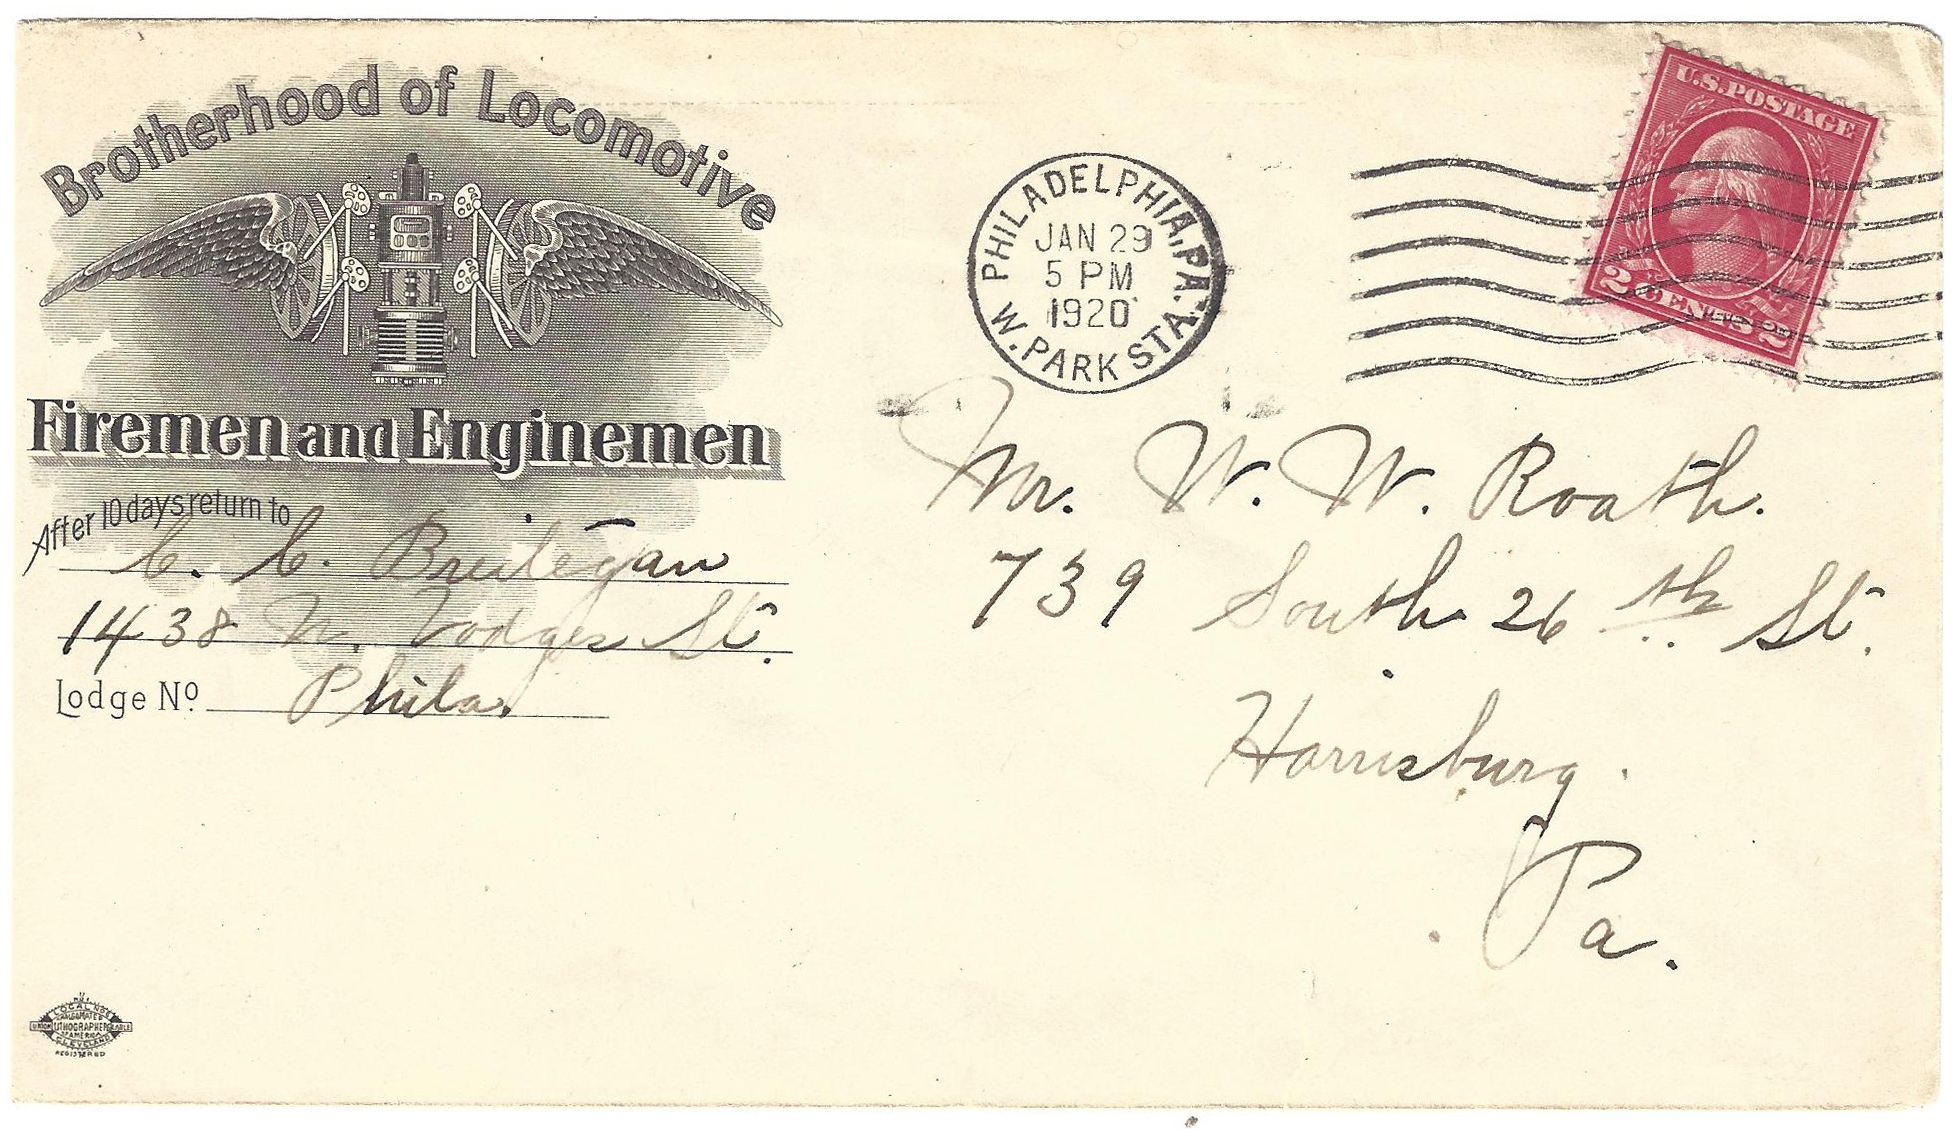 Brotherhood of Locomotive
Firemen and Enginemen
After 10 days return to
C. C. Breitegan
1438 N. Vodges St.
Lodge No. Phila.
PHILADELPHIA, PA.
JAN 29
5 PM
1920
W. PARK STA.
U.S. POSTAGE
2 CENTS 2
Mr. W. W. Roath.
739 South 26th St.
Harrisburg
Pa.
LOCAL NO
AMALGAMATED
UNION LITHOGRAPHERS LABEL
OF AMERICA
CLEVELAND
REGISTERED